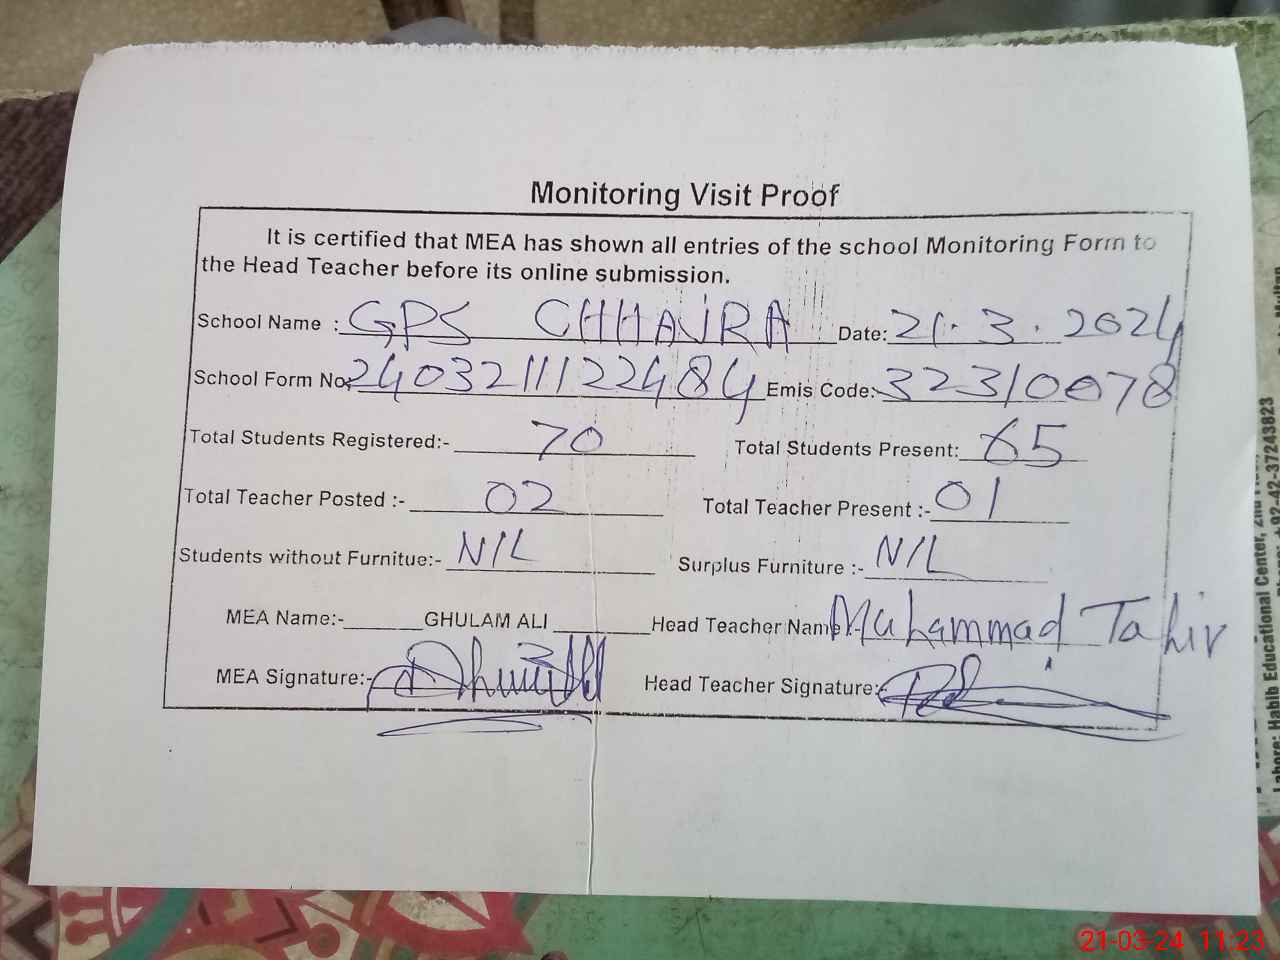 Monitoring Visit Proof
It is certified that MEA has shown all entries of the school Monitoring Form to
the Head Teacher before its online submission.
School Name : GPS CHHAJRA Date: 21.3.2024
School Form No: 240321112 2484 Emis Code:- 32310078
Total Students Registered:- 70 Total Students Present: 65
Total Teacher Posted :- 02 Total Teacher Present :- 01
Students without Furnitue:- NIL Surplus Furniture :- NIL
MEA Name:- GHULAM ALI Head Teacher Name :- Muhammad Tahir
MEA Signature:- Head Teacher Signature:-
Lahore: Habib Educational Center, 2nd
+92-42-37243823
21-03-24 11:23